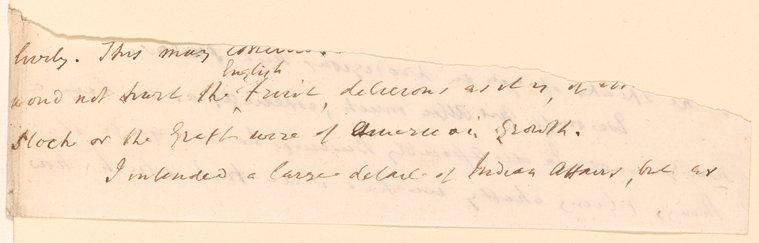 This may
English
would not hurt the ‸ fruit, delicious as it is, if
Stock or the Graft were of American Growth.
I intended a large detail of Indian Affairs, but as